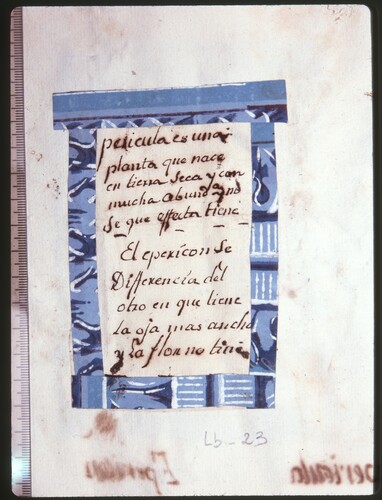 pericula es una
planta que nace
en tierra seca y con
mucha abunda, no
se que effeta tiene
El epericon se
Differencia del
otro en que tiene
la oja mas ancha
y la flor no tiene
Lb-23